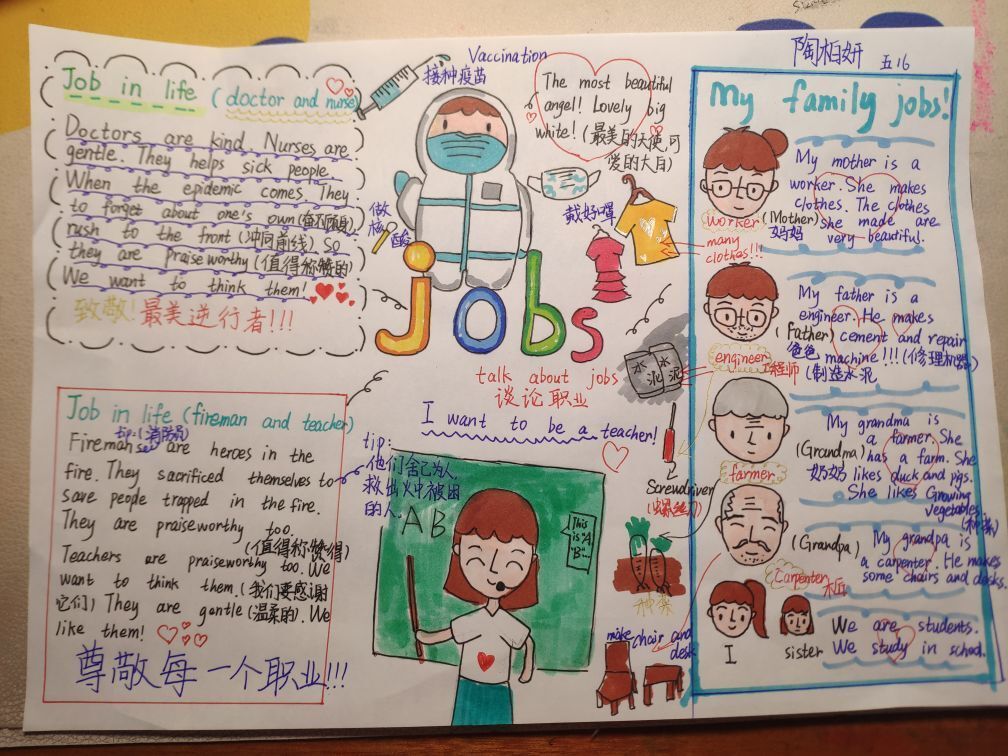 陶柏妍 五16
Job in life (doctor and nurse)
Doctors are kind. Nurses are
gentle. They helps sick people.
When the epidemic comes They
to forget about one's own (奋不顾身),
rush to the front (冲向前线). So
they are praiseworthy (值得称赞的)
We want to think them!
致敬!最美逆行者!!!
Vaccination
接种疫苗
The most beautiful
angel! Lovely big
white! (最美的天使,可
爱的大白)
戴好口罩
做核酸
many
clothes!!!
jobs
talk about jobs
谈论职业
I want to be a teacher!
Job in life (fireman and teacher)
tip:(消防员)
Firemans are heroes in the
fire. They sacrificed themselves to
save people trapped in the fire.
They are praiseworthy too.
(值得称赞得)
Teachers are praiseworthy too. We
want to think them. (我们要感谢
它们) They are gentle (温柔的). We
like them!
尊敬每一个职业!!!
tip:
他们舍己为人,
救出火中被困
的人.
AB
This
is "A
"B"...
水泥
水泥
Screwdriver
(螺丝刀)
种菜
make chair and
desk
My family jobs!
My mother is a
worker. She makes
clothes. The clothes
she made are
very beautiful.
worker
(Mother)
妈妈
My father is a
engineer. He makes
cement and repair
machine!!! (修理机器)
(制造水泥
(Father)
爸爸
engineer
工程师
My grandma is
a farmer. She
has a farm. She
likes duck and pigs.
She likes Growing
vegetables.
(种菜)
(Grandma)
奶奶
farmer
My grandpa is
a carpenter. He makes
some chairs and desks.
(Grandpa)
Carpenter
木匠
We are students.
We study in school.
I
sister